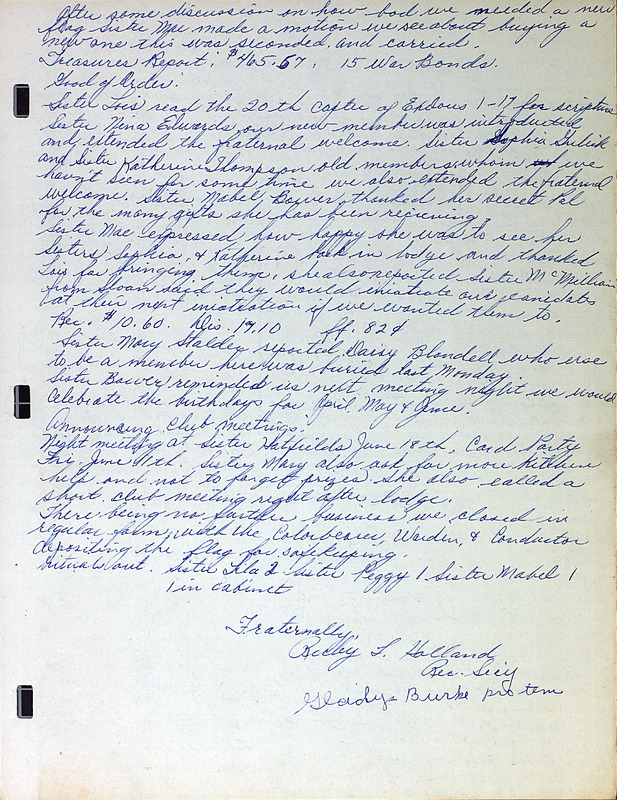 After some discussion on how bad we needed a new
flag Sister Mae made a motion we see about buying a
new one this was seconded and carried.
Treasures Report. $465.67. 15 War Bonds.
Good of Order.
Sister Lois read the 20th captre of Exdous 1-17 for scripture
Sister Nina Edwards, our new member was introduced
and extended the fraternal welcome. Sister Sophia
and Sister Katherine Thompson old members whom we
havn't seen for some time we also extended the fraternal
welcome. Sister Mabel Bower thanked her secret Pal
for the many gifts she has been recieving.
Sister Mae expressed how happy she was to see her
Sisters Sophia, & Katherine back in lodge and thanked
Lois for bringing them, she also reported Sister McMillian
from Sloan said they would iniatiate our canidates
at their next iniatiation if we wanted them to.
Rec. $10.60. Dis. 19.10 ff. 82¢
Sister Mary Stalder reported, Daisy Blondell who use
to be a member here was buried last Monday.
Sister Bower reminded us next meeting night we would
celebrate the birthdays for April, May & June.
Announcing Club Meetings.
Night meeting at Sister Hatfields June 18th, Card Party
Fri. June 11th. Sister Mary also ask for more kitchen
help and not to forget prizes she also called a
short club meeting right after lodge.
There being no further business we closed in
regular form, with the Colorbearer, Warden, & Conductor
depositing the flag for safekeeping.
Rituals out. Sister Lela 2 Sister Peggy 1 Sister Mabel 1
1 in cabinet
Fraternally,
L. Holland
Rec. Sec'y
Gladys Burke pro tem